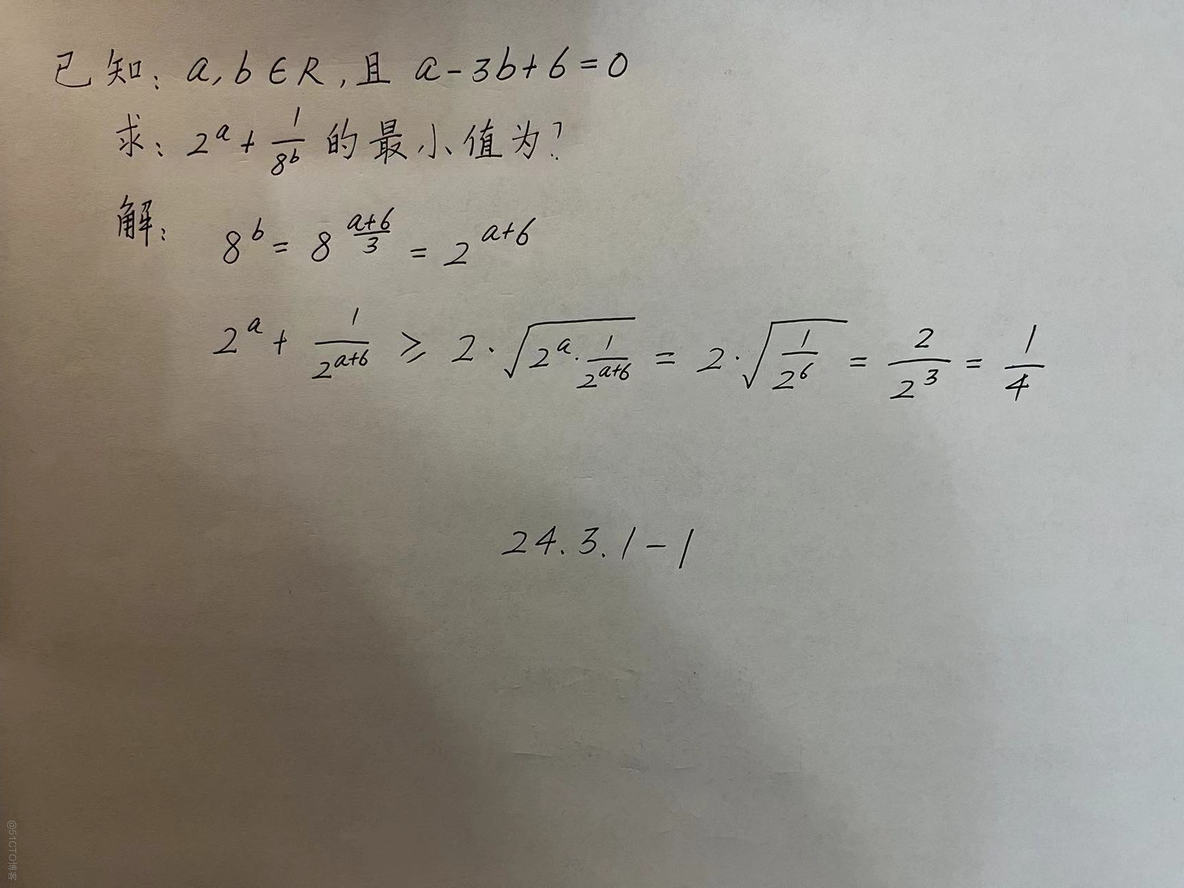 已知: a, b ∈ R, 且 a - 3b + 6 = 0
求: 2^a + 1/8^b 的最小值为?
解: 8^b = 8^((a+6)/3) = 2^(a+6)
2^a + 1/2^(a+6) ≥ 2·√(2^a · 1/2^(a+6)) = 2·√(1/2^6) = 2/2^3 = 1/4
24.3.1-1
@51CTO博客